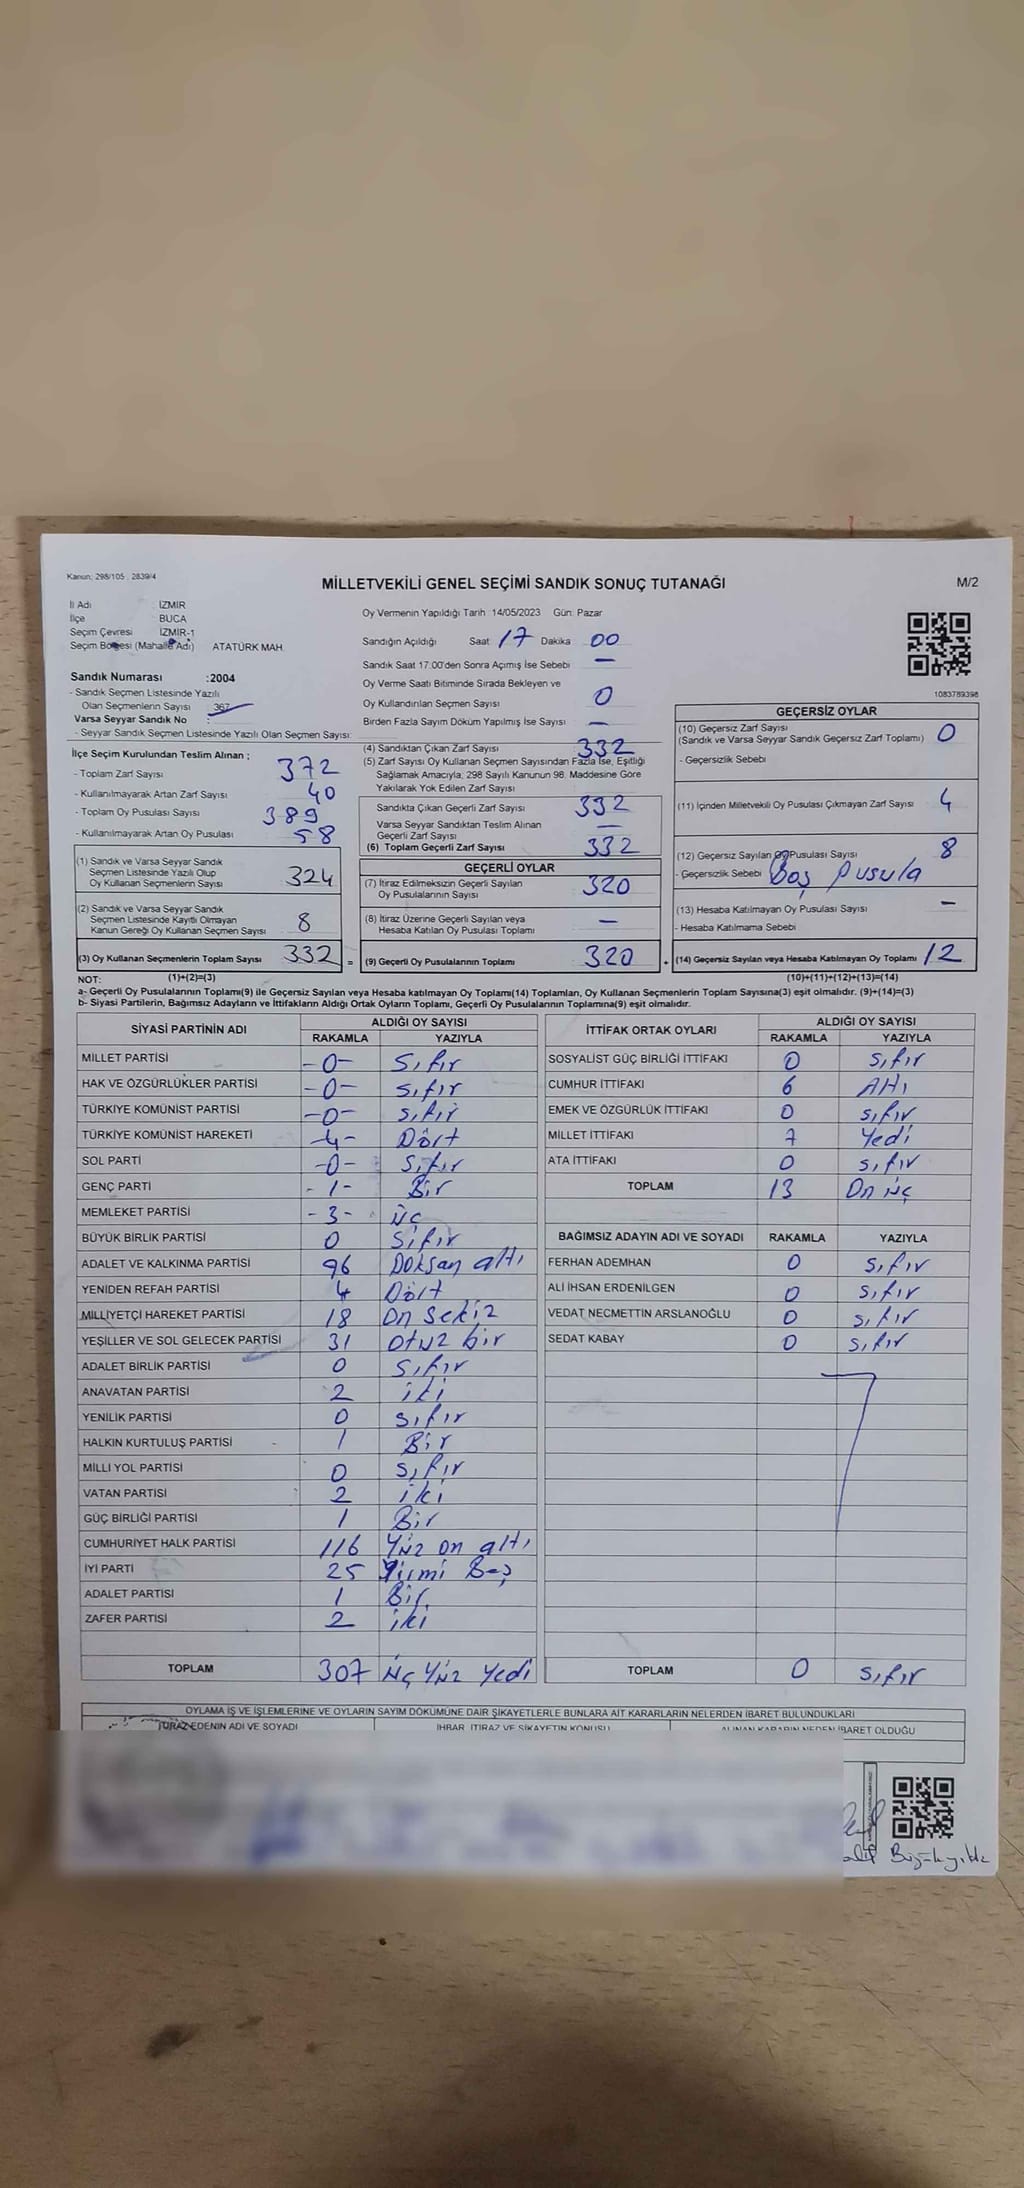 Kanun: 298/105 , 2839/4
MİLLETVEKİLİ GENEL SEÇİMİ SANDIK SONUÇ TUTANAĞI
M/2
İl Adı : İZMİR
İlçe : BUCA
Seçim Çevresi : İZMİR-1
Seçim Bölgesi (Mahalle Adı) ATATÜRK MAH.
Sandık Numarası :2004
- Sandık Seçmen Listesinde Yazılı
Olan Seçmenlerin Sayısı : 367
Varsa Seyyar Sandık No :
- Seyyar Sandık Seçmen Listesinde Yazılı Olan Seçmen Sayısı:
Oy Vermenin Yapıldığı Tarih 14/05/2023 Gün: Pazar
Sandığın Açıldığı Saat 17 Dakika 00
Sandık Saat 17:00'den Sonra Açımış İse Sebebi —
Oy Verme Saati Bitiminde Sırada Bekleyen ve
Oy Kullandırılan Seçmen Sayısı 0
Birden Fazla Sayım Döküm Yapılmış İse Sayısı —
1083789398
İlçe Seçim Kurulundan Teslim Alınan ;
- Toplam Zarf Sayısı 372
- Kullanılmayarak Artan Zarf Sayısı 40
- Toplam Oy Pusulası Sayısı 389
- Kullanılmayarak Artan Oy Pusulası 58
(1) Sandık ve Varsa Seyyar Sandık
Seçmen Listesinde Yazılı Olup
Oy Kullanan Seçmenlerin Sayısı 324
(2) Sandık ve Varsa Seyyar Sandık
Seçmen Listesinde Kayıtlı Olmayan
Kanun Gereği Oy Kullanan Seçmen Sayısı 8
(3) Oy Kullanan Seçmenlerin Toplam Sayısı 332 =
(4) Sandıktan Çıkan Zarf Sayısı 332
(5) Zarf Sayısı Oy Kullanan Seçmen Sayısından Fazla İse, Eşitliği
Sağlamak Amacıyla, 298 Sayılı Kanunun 98. Maddesine Göre
Yakılarak Yok Edilen Zarf Sayısı
Sandıkta Çıkan Geçerli Zarf Sayısı 332
Varsa Seyyar Sandıktan Teslim Alınan
Geçerli Zarf Sayısı —
(6) Toplam Geçerli Zarf Sayısı 332
GEÇERLİ OYLAR
(7) İtiraz Edilmeksizin Geçerli Sayılan
Oy Pusulalarının Sayısı 320
(8) İtiraz Üzerine Geçerli Sayılan veya
Hesaba Katılan Oy Pusulası Toplamı —
(9) Geçerli Oy Pusulalarının Toplamı 320 +
GEÇERSİZ OYLAR
(10) Geçersiz Zarf Sayısı 0
(Sandık ve Varsa Seyyar Sandık Geçersiz Zarf Toplamı)
- Geçersizlik Sebebi
(11) İçinden Milletvekili Oy Pusulası Çıkmayan Zarf Sayısı 4
(12) Geçersiz Sayılan Oy Pusulası Sayısı 8
- Geçersizlik Sebebi Boş Pusula
(13) Hesaba Katılmayan Oy Pusulası Sayısı –
- Hesaba Katılmama Sebebi
(14) Geçersiz Sayılan veya Hesaba Katılmayan Oy Toplamı 12
NOT: (1)+(2)=(3) (10)+(11)+(12)+(13)=(14)
a- Geçerli Oy Pusulalarının Toplamı(9) ile Geçersiz Sayılan veya Hesaba katılmayan Oy Toplamı(14) Toplamları, Oy Kullanan Seçmenlerin Toplam Sayısına(3) eşit olmalıdır. (9)+(14)=(3)
b- Siyasi Partilerin, Bağımsız Adayların ve İttifakların Aldığı Ortak Oyların Toplamı, Geçerli Oy Pusulalarının Toplamına(9) eşit olmalıdır.
SİYASİ PARTİNİN ADI ALDIĞI OY SAYISI
RAKAMLA YAZIYLA
MİLLET PARTİSİ -0- Sıfır
HAK VE ÖZGÜRLÜKLER PARTİSİ -0- Sıfır
TÜRKİYE KOMÜNİST PARTİSİ -0- Sıfır
TÜRKİYE KOMÜNİST HAREKETİ -4- Dört
SOL PARTİ -0- Sıfır
GENÇ PARTİ -1- Bir
MEMLEKET PARTİSİ -3- üç
BÜYÜK BİRLİK PARTİSİ 0 Sıfır
ADALET VE KALKINMA PARTİSİ 96 Doksan altı
YENİDEN REFAH PARTİSİ 4 Dört
MİLLİYETÇİ HAREKET PARTİSİ 18 On Sekiz
YEŞİLLER VE SOL GELECEK PARTİSİ 31 Otuz bir
ADALET BİRLİK PARTİSİ 0 Sıfır
ANAVATAN PARTİSİ 2 iki
YENİLİK PARTİSİ 0 Sıfır
HALKIN KURTULUŞ PARTİSİ 1 Bir
MİLLİ YOL PARTİSİ 0 Sıfır
VATAN PARTİSİ 2 iki
GÜÇ BİRLİĞİ PARTİSİ 1 Bir
CUMHURİYET HALK PARTİSİ 116 Yüz on altı
İYİ PARTİ 25 Yirmi Beş
ADALET PARTİSİ 1 Bir
ZAFER PARTİSİ 2 iki
TOPLAM 307 üç Yüz Yedi
İTTİFAK ORTAK OYLARI ALDIĞI OY SAYISI
RAKAMLA YAZIYLA
SOSYALİST GÜÇ BİRLİĞİ İTTİFAKI 0 Sıfır
CUMHUR İTTİFAKI 6 Altı
EMEK VE ÖZGÜRLÜK İTTİFAKI 0 Sıfır
MİLLET İTTİFAKI 7 Yedi
ATA İTTİFAKI 0 Sıfır
TOPLAM 13 On üç
BAĞIMSIZ ADAYIN ADI VE SOYADI RAKAMLA YAZIYLA
FERHAN ADEMHAN 0 Sıfır
ALİ İHSAN ERDENİLGEN 0 Sıfır
VEDAT NECMETTİN ARSLANOĞLU 0 Sıfır
SEDAT KABAY 0 Sıfır
TOPLAM 0 Sıfır
OYLAMA İŞ VE İŞLEMLERİNE VE OYLARIN SAYIM DÖKÜMÜNE DAİR ŞİKAYETLERLE BUNLARA AİT KARARLARIN NELERDEN İBARET BULUNDUKLARI
İTİRAZ EDENİN ADI VE SOYADI İHBAR, İTİRAZ VE ŞİKAYETİN KONUSU ALINAN KARARIN NEDEN İBARET OLDUĞU